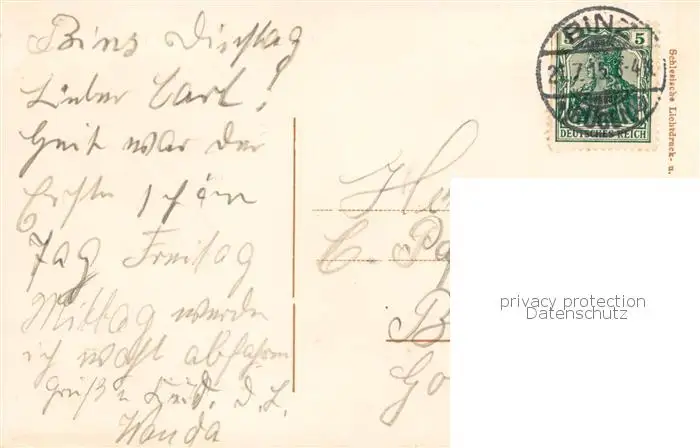 Binz Dienstag
Lieber Carl!
Heit war der
Erste schöne
Tag Freitag
Mittag werde
ich wohl abfahren
Gruß u. d. L.
Wanda
He
C. Pa
B
Go
BINZ
5
2 .7.15. -4
(RÜGEN)
DEUTSCHES REICH
Schlesische Lichtdruck- u.
privacy protection
Datenschutz